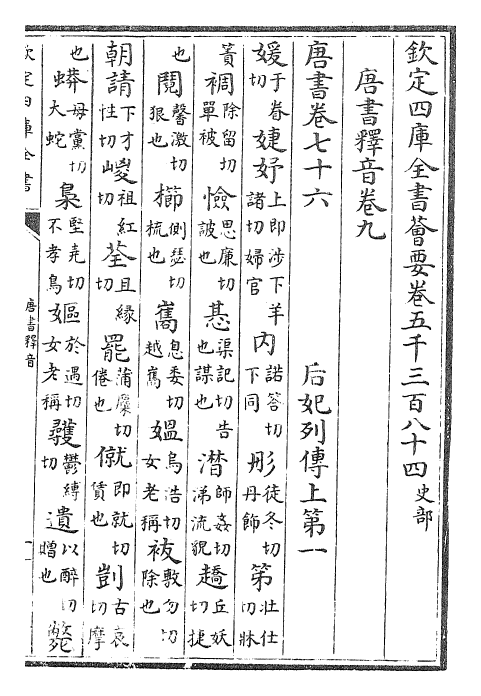 欽定四庫全書薈要卷五千三百八十四 史部
唐書釋音卷九
唐書卷七十六 后妃列傳上第一
媛于眷切婕妤上即涉下羊諸切婦官内諾答切下同彤徒冬切丹飾第壯仕切牀
簀裯除留切單被憸思廉切詖也惎渠記切告也謀也潸師姦切涕流貌趫丘妖切捷
也鬩馨激切狠也櫛側瑟切梳也巂息委切越巂媼烏浩切女老稱祓敷勿切除也
朝請下才性切嵕祖紅切荃且緣切罷蒲糜切倦也僦即就切賃也剴古哀切摩
也蟒母黨切大蛇梟堅堯切不孝鳥嫗於遇切女老稱彠鬱縛切遺以醉切贈也
欽定四庫全書
唐書釋音